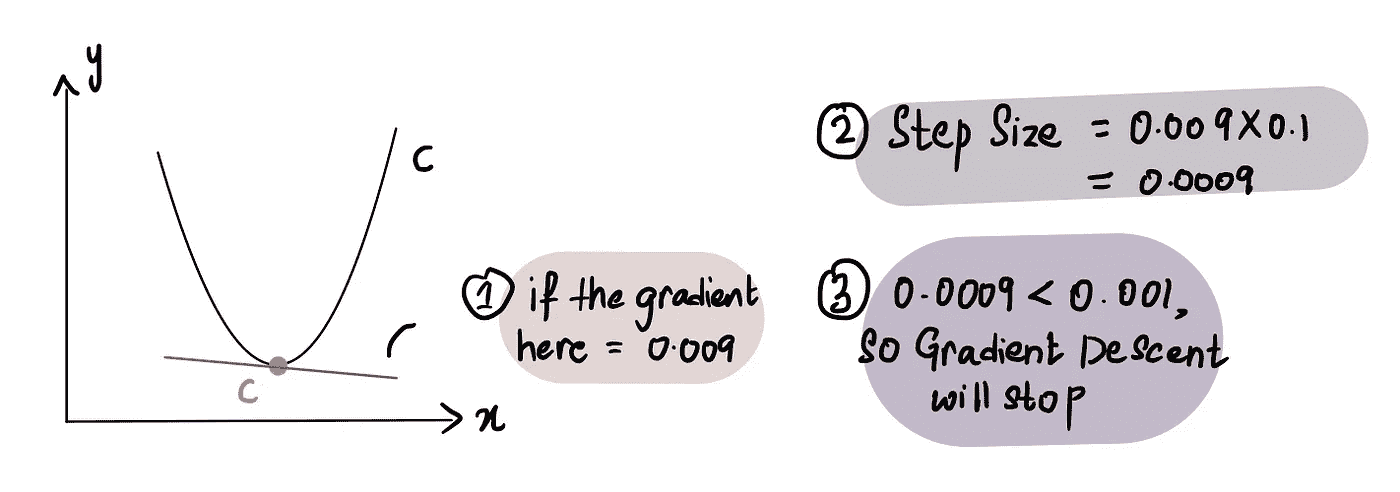 y
C
C
x
① if the gradient
here = 0.009
② Step Size = 0.009X0.1
= 0.0009
③ 0.0009 < 0.001,
so Gradient Descent
will stop